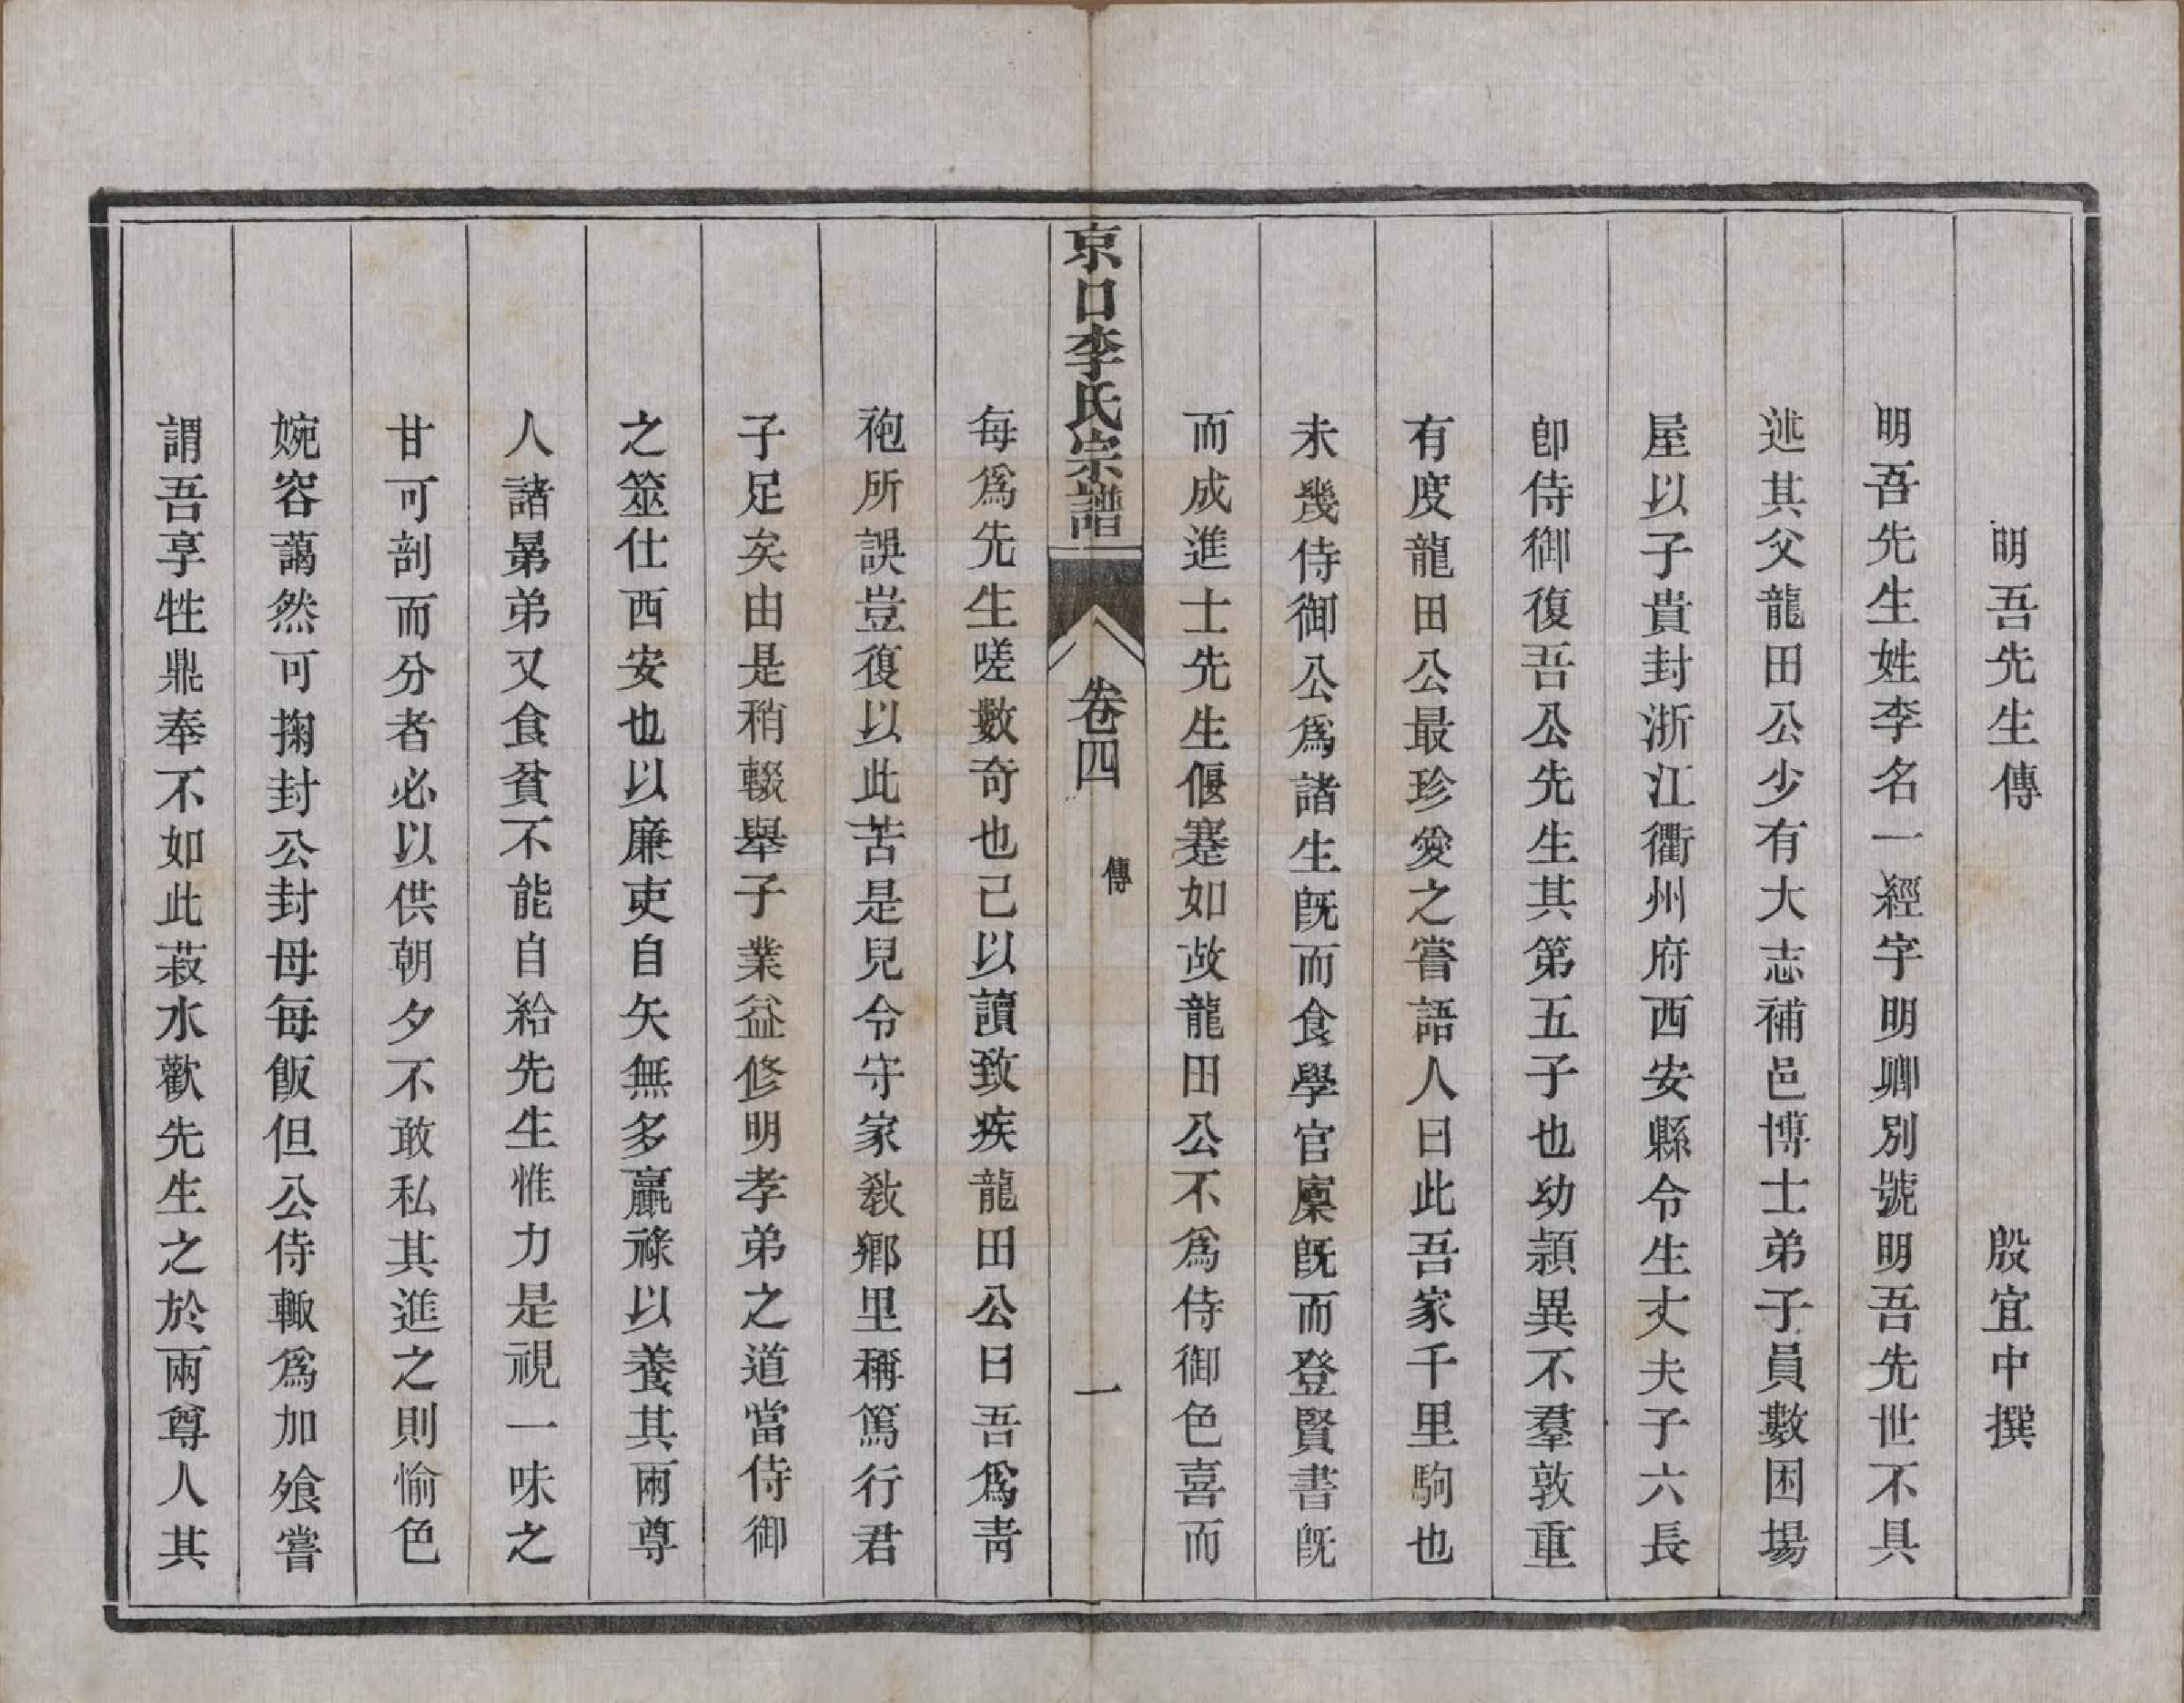 明吾先生傳　殷宜中撰
明吾先生姓李名一經字明卿別號明吾先世不具
述其父龍田公少有大志補邑博士弟子員數困場
屋以子貴封浙江衢州府西安縣令生丈夫子六長
卽侍御復吾公先生其第五子也幼頴異不羣敦重
有度龍田公最珍愛之嘗語人曰此吾家千里駒也
未幾侍御公爲諸生旣而食學官廩旣而登賢書旣
而成進士先生偃蹇如故龍田公不爲侍御色喜而
京口李氏宗譜　卷四　傳　一
每爲先生嗟數奇也己以讀致疾龍田公曰吾爲靑
袍所誤豈復以此苦是兒令守家敎鄉里稱篤行君
子足矣由是稍輟舉子業益修明孝弟之道當侍御
之筮仕西安也以廉吏自矢無多贏祿以養其兩尊
人諸晜弟又食貧不能自給先生惟力是視一味之
甘可剖而分者必以供朝夕不敢私其進之則愉色
婉容藹然可掬封公封母每飯但公侍輙爲加飧嘗
謂吾享牲鼎奉不如此菽水歡先生之於兩尊人其